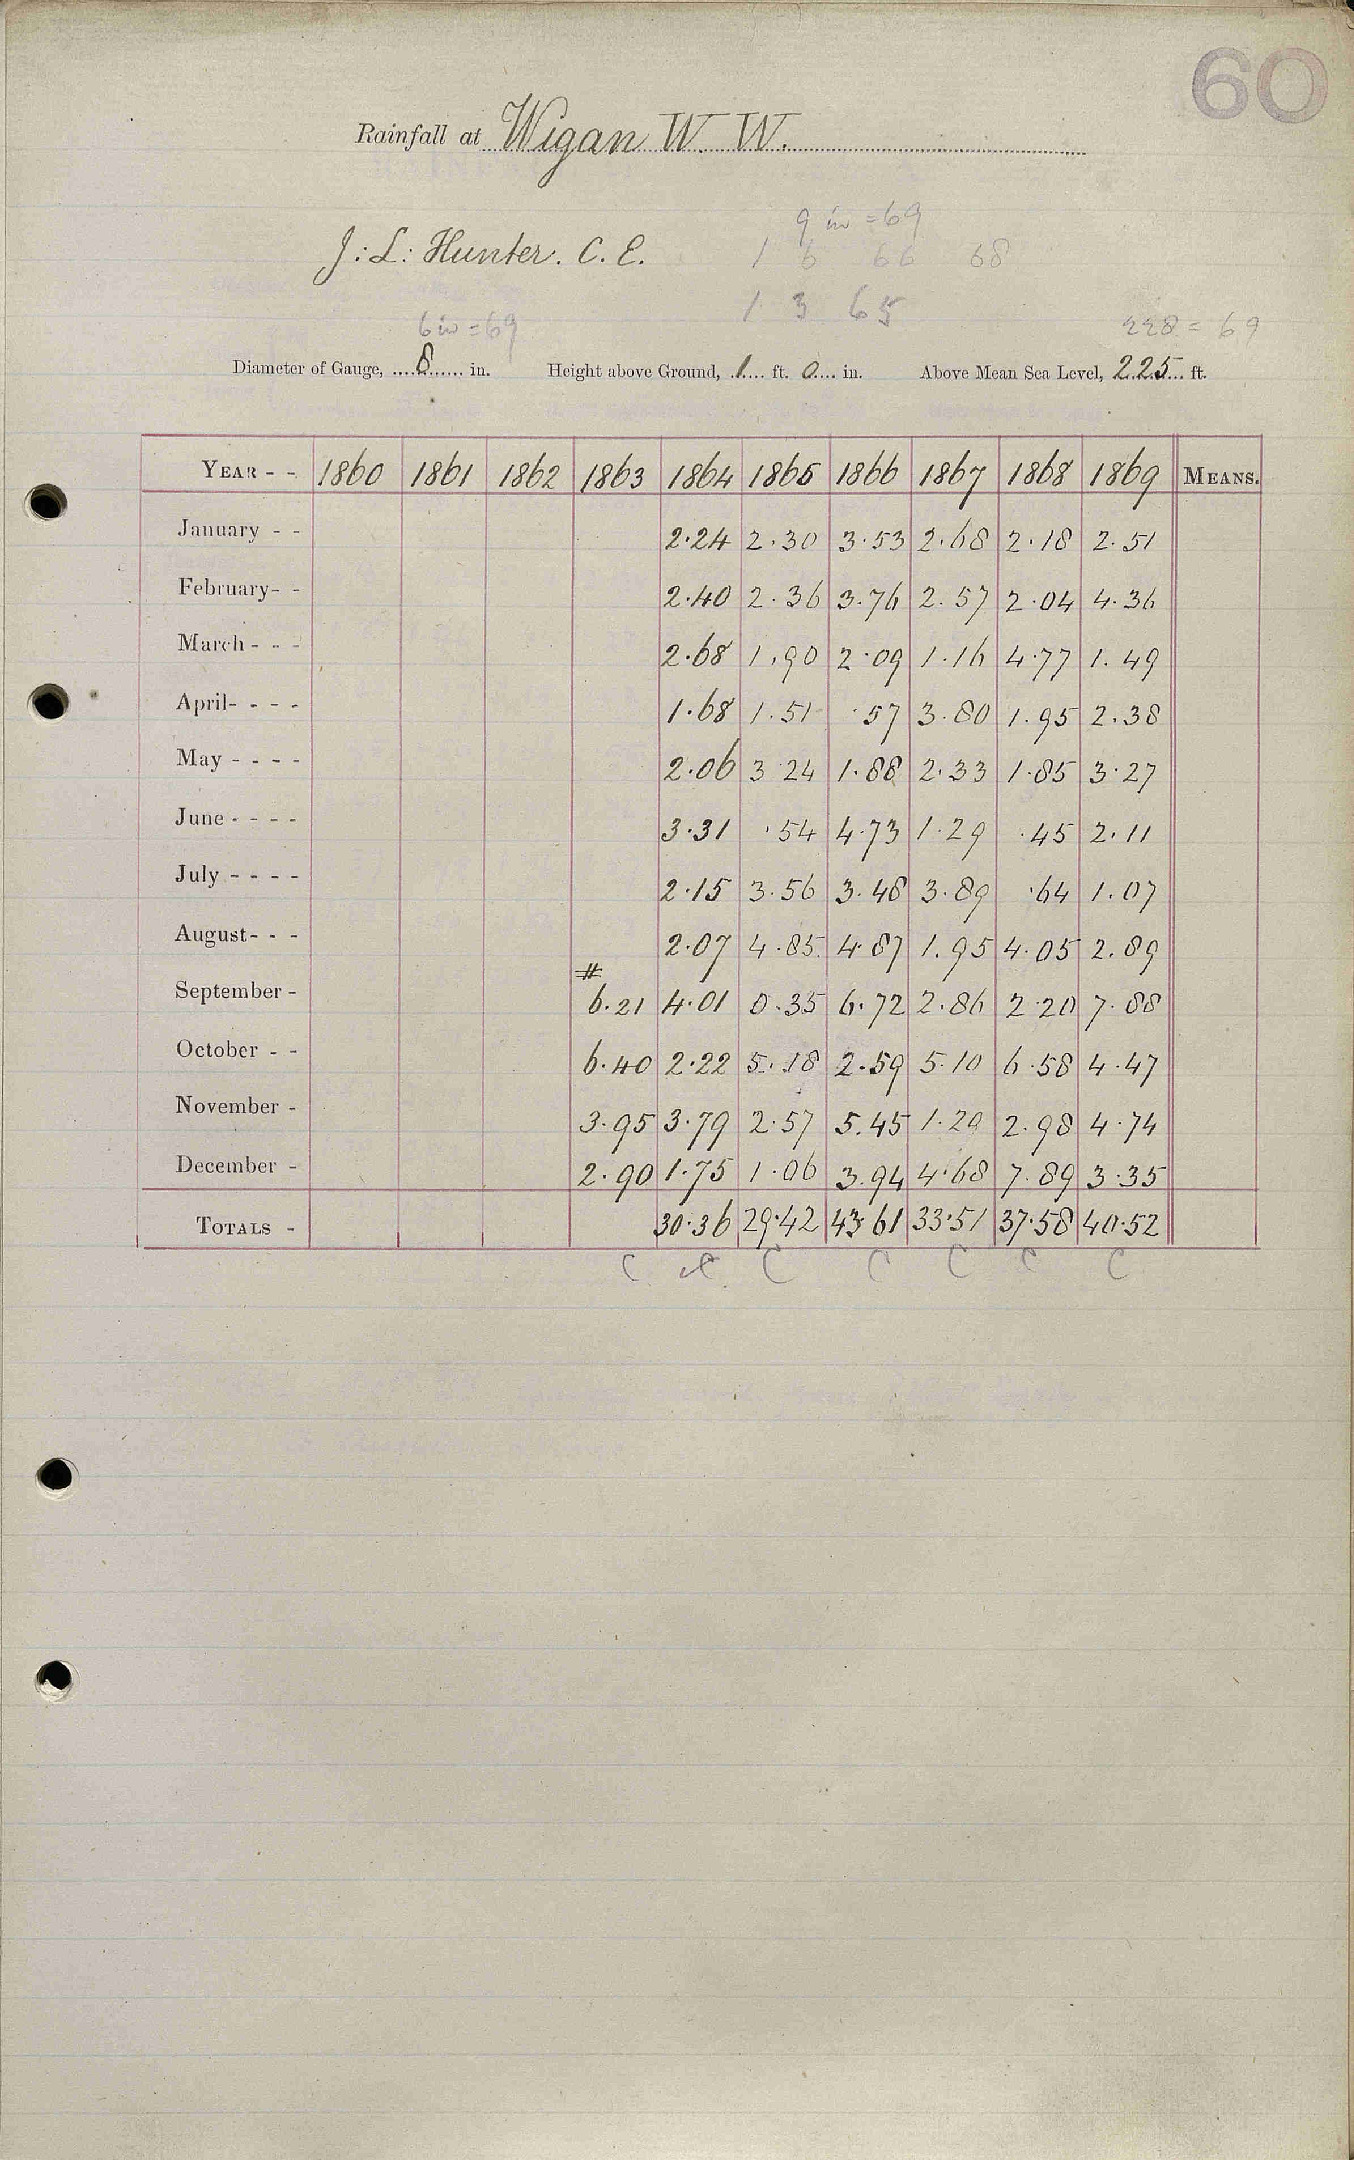 60
Rainfall at Wigan W. W.
9 in = 69
J: L: Hunter. C. E. 1 6 66 68
1 3 65
6 in = 69 228 = 69
Diameter of Gauge, 8 in. Height above Ground, 1 ft. 0 in. Above Mean Sea Level, 225 ft.
YEAR - - 1860 1861 1862 1863 1864 1865 1866 1867 1868 1869 MEANS.
January - - 2.24 2.30 3.53 2.68 2.18 2.51
February - - 2.40 2.36 3.76 2.57 2.04 4.36
March - - - 2.68 1.90 2.09 1.16 4.77 1.49
April - - - - 1.68 1.51 .57 3.80 1.95 2.38
May - - - - 2.06 3.24 1.88 2.33 1.85 3.27
June - - - - 3.31 .54 4.73 1.29 .45 2.11
July - - - - 2.15 3.56 3.48 3.89 .64 1.07
August - - - 2.07 4.85 4.87 1.95 4.05 2.89
#
September - 6.21 4.01 0.35 6.72 2.86 2.20 7.88
October - - 6.40 2.22 5.18 2.59 5.10 6.58 4.47
November - 3.95 3.79 2.57 5.45 1.20 2.98 4.74
December - 2.90 1.75 1.06 3.94 4.68 7.89 3.35
TOTALS - 30.36 29.42 43.61 33.51 37.58 40.52
C C C C C C C